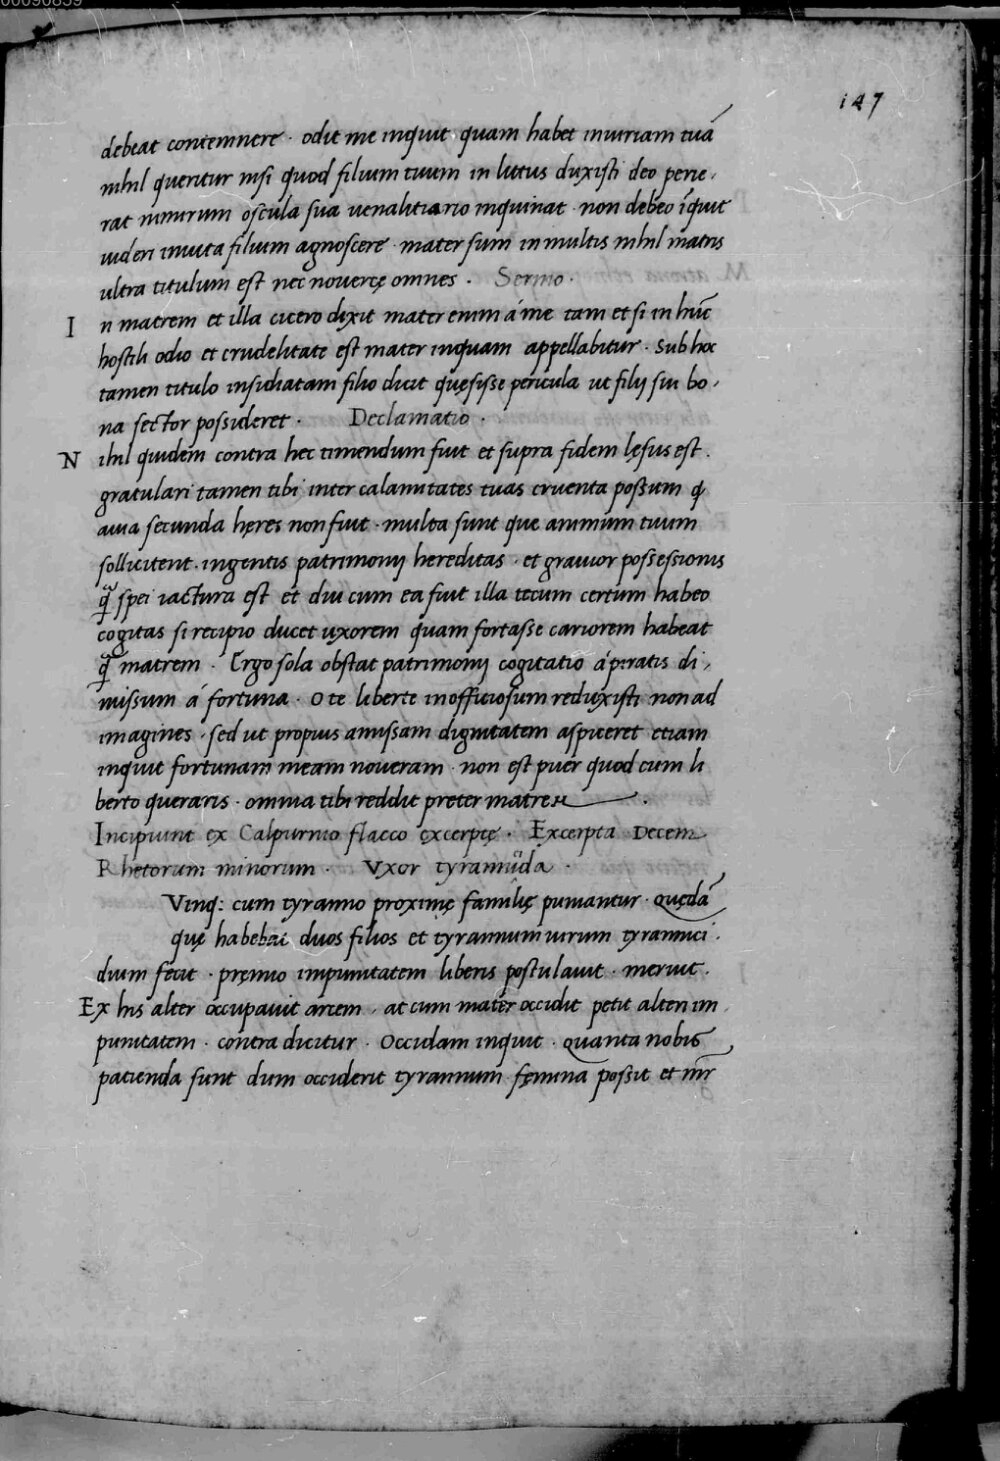 147
debeat contemnere · odit me inquit quam habet iniuriam tuā
nihil queritur nisi quod filium tuum in lutus duxisti deo perie,
rat nimirum oscula sua uenalitiario inquinat · non debeo īquit
uideri inuita filium agnoscere · mater sum in multis nihil matris
ultra titulum est nec nouercę omnes · Sermo ·
I n matrem et illa cicero dixit mater enim á me tam et si in hūc
hostili odio et crudelitate est mater inquam appellabitur · Sub hoc
tamen titulo insidiatam filio dicit quęsisse pericula ut filij sui bo,
na sector possideret · Declamatio ·
N ihil quidem contra hec timendum fuit et supra fidem lęsus est ·
gratulari tamen tibi inter calamitates tuas cruenta possum ꝙ
auia secunda hęres non fuit · multa sunt que animum tuum
sollicitent · ingentis patrimonij hereditas · et grauior possessionis
ꝙ̃ spei iactura est et diu cum ea fuit illa tecum certum habeo
cogitas si recipio ducet uxorem quam fortasse cariorem habeat
ꝙ̃ matrem · Ergo sola obstat patrimonij cogitatio á piratis di,
missum á fortuna · O te liberte inofficiosum reduxisti non ad
imagines · sed ut propius amissam dignitatem aspiceret etiam
inquit fortunam meam noueram · non est puer quod cum li
berto queraris · omnia tibi reddit preter matrem ·
Incipiunt ex Calpurnio flacco excerptę · Excerpta Decem
Rhetorum minorum · Vxor tyrannicida ·
Vinq: cum tyranno proximę familię puniantur · quędā
quę habebat duos filios et tyrannum uirum tyrannici ·
dium fecit · pręmio impunitatem liberis postulauit · meruit ·
Ex his alter occupauit arcem · at cum mater occidit petit alteri im
punitatem · contra dicitur · Occidam inquit · quanta nobis
patienda sunt dum occiderit tyrannum fęmina possit et